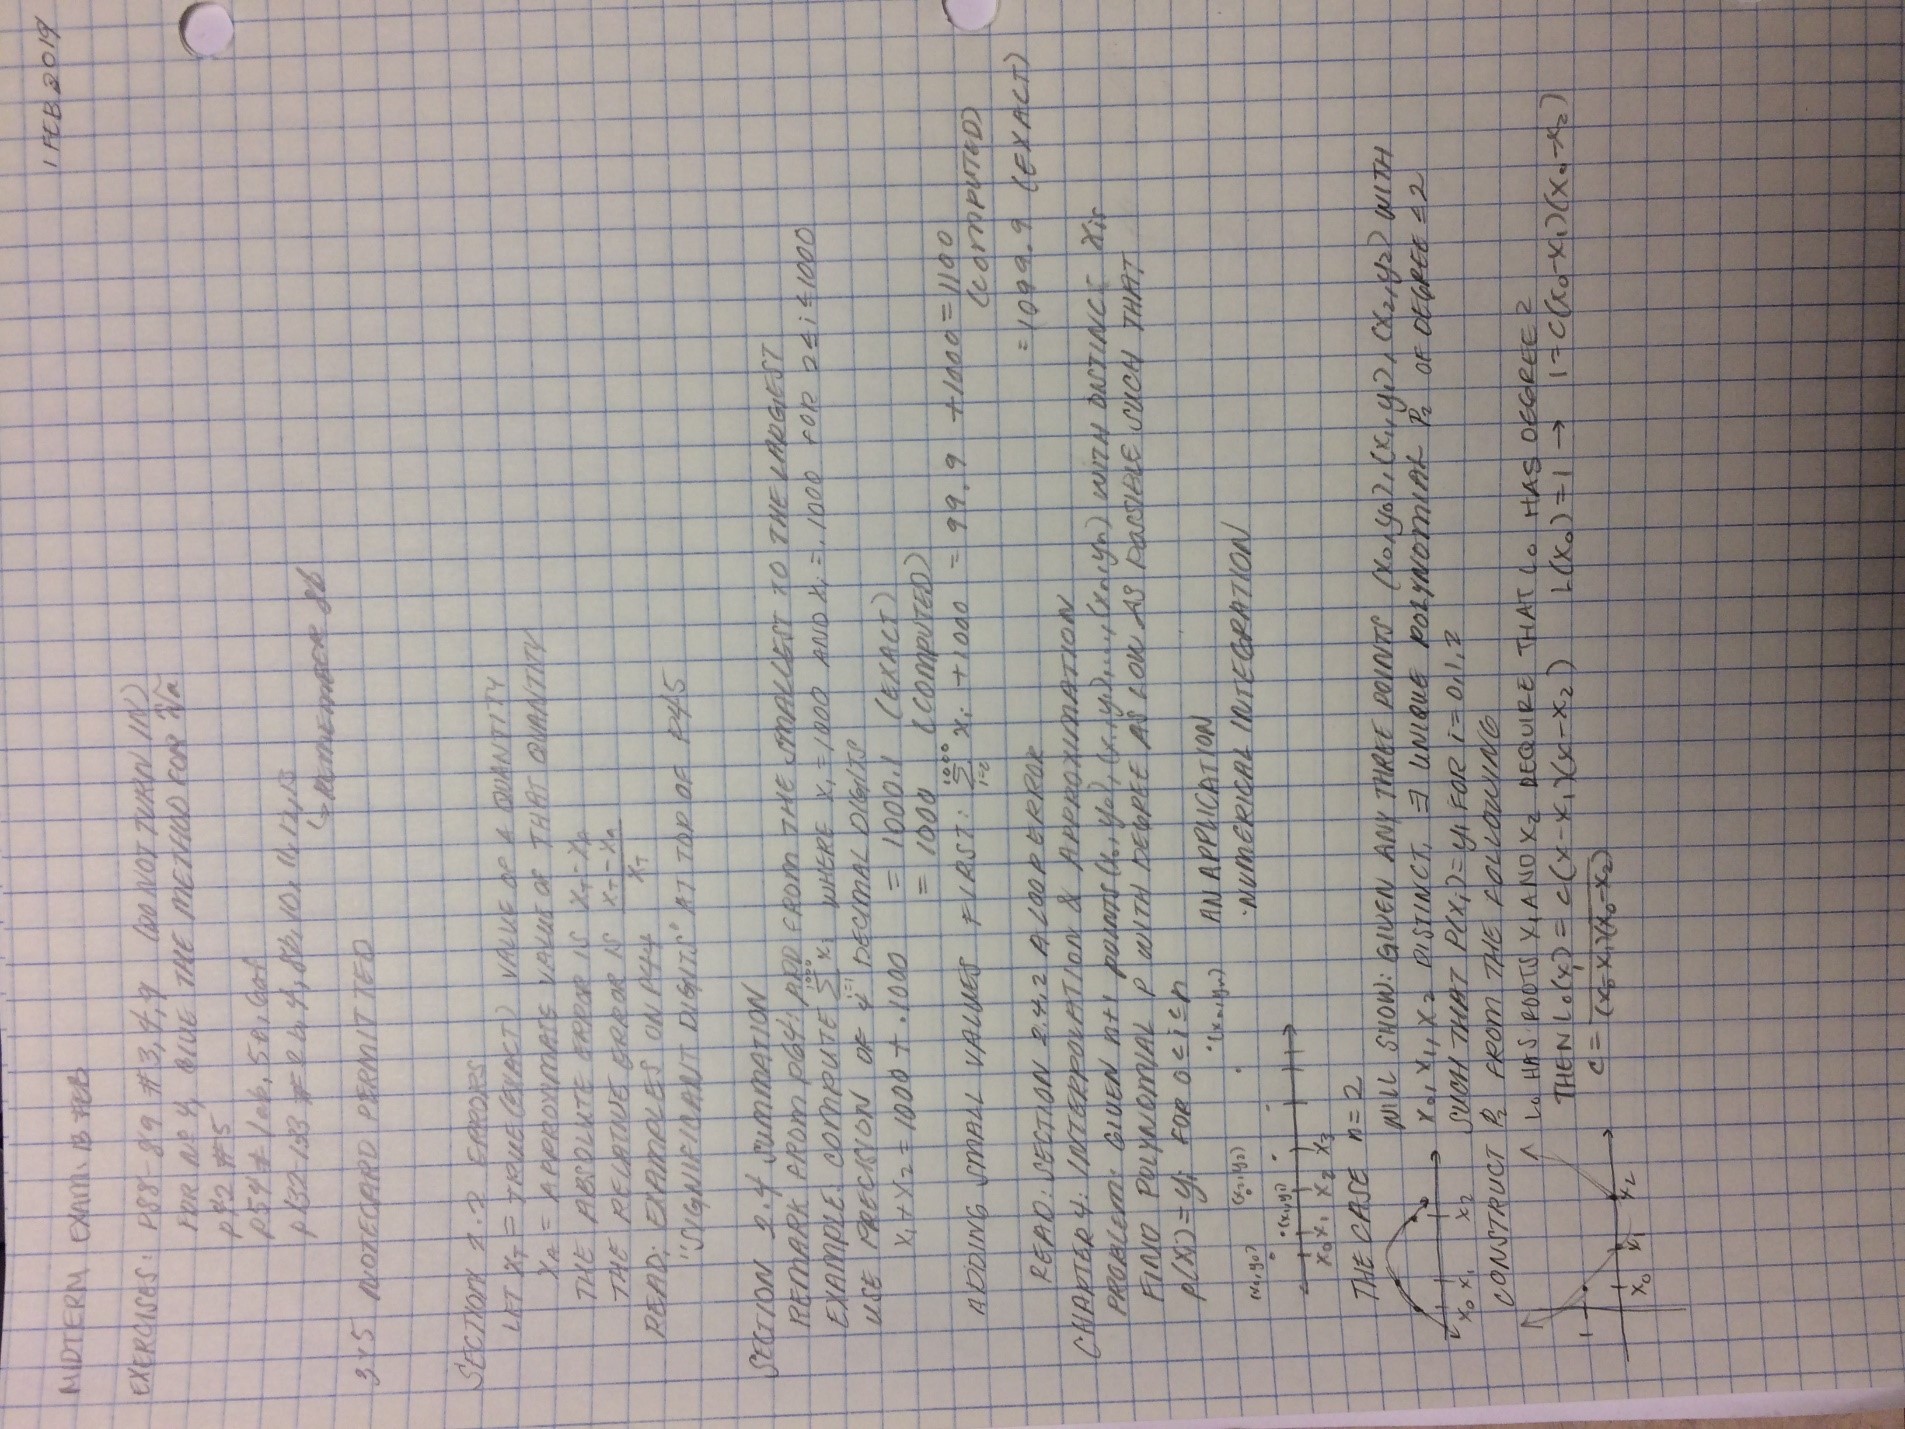 1 FEB 2019
MIDTERM EXAM: 13 FEB
EXERCISES: P88-89 #3,4,9 (DO NOT TURN IN)
FOR Nº 4, GIVE THE METHOD FOR ⁿ√a
p42 #5
p54 # 1ab, 5e,
p132-133 # 2b, 4, 8b, 10, 11, 12, 13
↳ REMEMBER 8b
3x5 NOTECARD PERMITTED
SECTION 2.2 ERRORS
LET x_T = TRUE (EXACT) VALUE OF A QUANTITY
x_A = APPROXIMATE VALUE OF THAT QUANTITY
THE ABSOLUTE ERROR IS x_T - x_A
THE RELATIVE ERROR IS (x_T - x_A)/x_T
READ: EXAMPLES ON P44
"SIGNIFICANT DIGITS" AT TOP OF P45
SECTION 2.4 SUMMATION
REMARK FROM P64: ADD FROM THE SMALLEST TO THE LARGEST
EXAMPLE: COMPUTE Σ_{i=1}^{1000} x_i WHERE x_1 = 1000 AND x_i = .1000 FOR 2 ≤ i ≤ 1000
USE PRECISION OF 4 DECIMAL DIGITS
x_1 + x_2 = 1000 + .1000 = 1000.1 (EXACT)
= 1000 (COMPUTED)
ADDING SMALL VALUES FIRST: Σ_{i=2}^{1000} x_i + 1000 = 99.9 + 1000 = 1100
(COMPUTED)
= 1099.9 (EXACT)
READ: SECTION 2.4.2 A LOOP ERROR
CHAPTER 4: INTERPOLATION & APPROXIMATION
PROBLEM: GIVEN n+1 POINTS (x_0, y_0), (x_1, y_1), ..., (x_n, y_n) WITH DISTINCT x_is
FIND POLYNOMIAL P WITH DEGREE AS LOW AS POSSIBLE SUCH THAT
p(x_i) = y_i FOR 0 ≤ i ≤ n
(x_0, y_0) (x_1, y_1) (x_2, y_2) (x_n, y_n)
x_0 x_1 x_2 x_3
AN APPLICATION
·NUMERICAL INTEGRATION
THE CASE n = 2
WILL SHOW: GIVEN ANY THREE POINTS (x_0, y_0), (x_1, y_1), (x_2, y_2) WITH
x_0, x_1, x_2 DISTINCT, ∃ UNIQUE POLYNOMIAL P_2 OF DEGREE ≤ 2
SUCH THAT P(x_i) = y_i FOR i = 0, 1, 2
x_0 x_1 x_2
CONSTRUCT P_2 FROM THE FOLLOWING
L_0 HAS ROOTS x_1 AND x_2 REQUIRE THAT L_0 HAS DEGREE 2
THEN L_0(x) = c(x-x_1)(x-x_2) L(x_0) = 1 → 1 = c(x_0-x_1)(x_0-x_2)
c = 1/((x_0-x_1)(x_0-x_2))
1
x_0 x_1 x_2